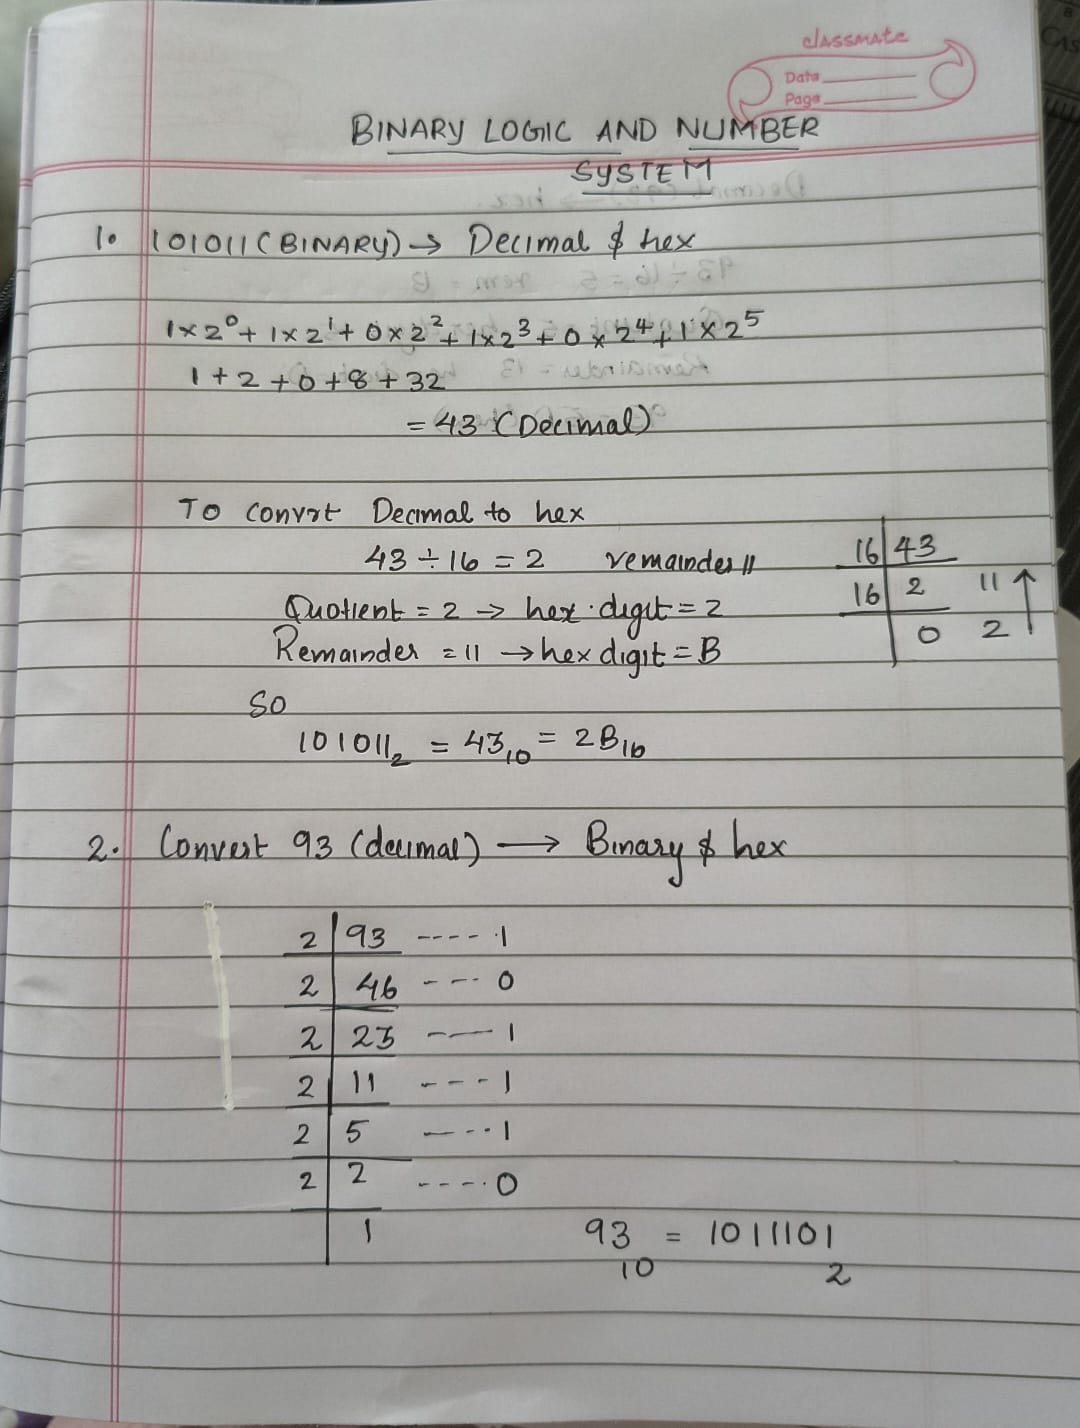 classmate
Date
Page
BINARY LOGIC AND NUMBER
SYSTEM
1. 101011 (BINARY) → Decimal & hex
1×2⁰ + 1×2¹ + 0×2² + 1×2³ + 0×2⁴ + 1×2⁵
1+2+0+8+32
= 43 (Decimal)
To convrt Decimal to hex
43 ÷ 16 = 2 remainder 11
Quotient = 2 → hex digit = 2
Remainder = 11 → hex digit = B
16 | 43
16 | 2 11 ↑
0 2
So
101011₂ = 43₁₀ = 2B₁₆
2. Convert 93 (decimal) → Binary & hex
2 | 93 ---- 1
2 | 46 --- 0
2 | 23 --- 1
2 | 11 --- 1
2 | 5 --- 1
2 | 2 ---- 0
1
93₁₀ = 1011101₂